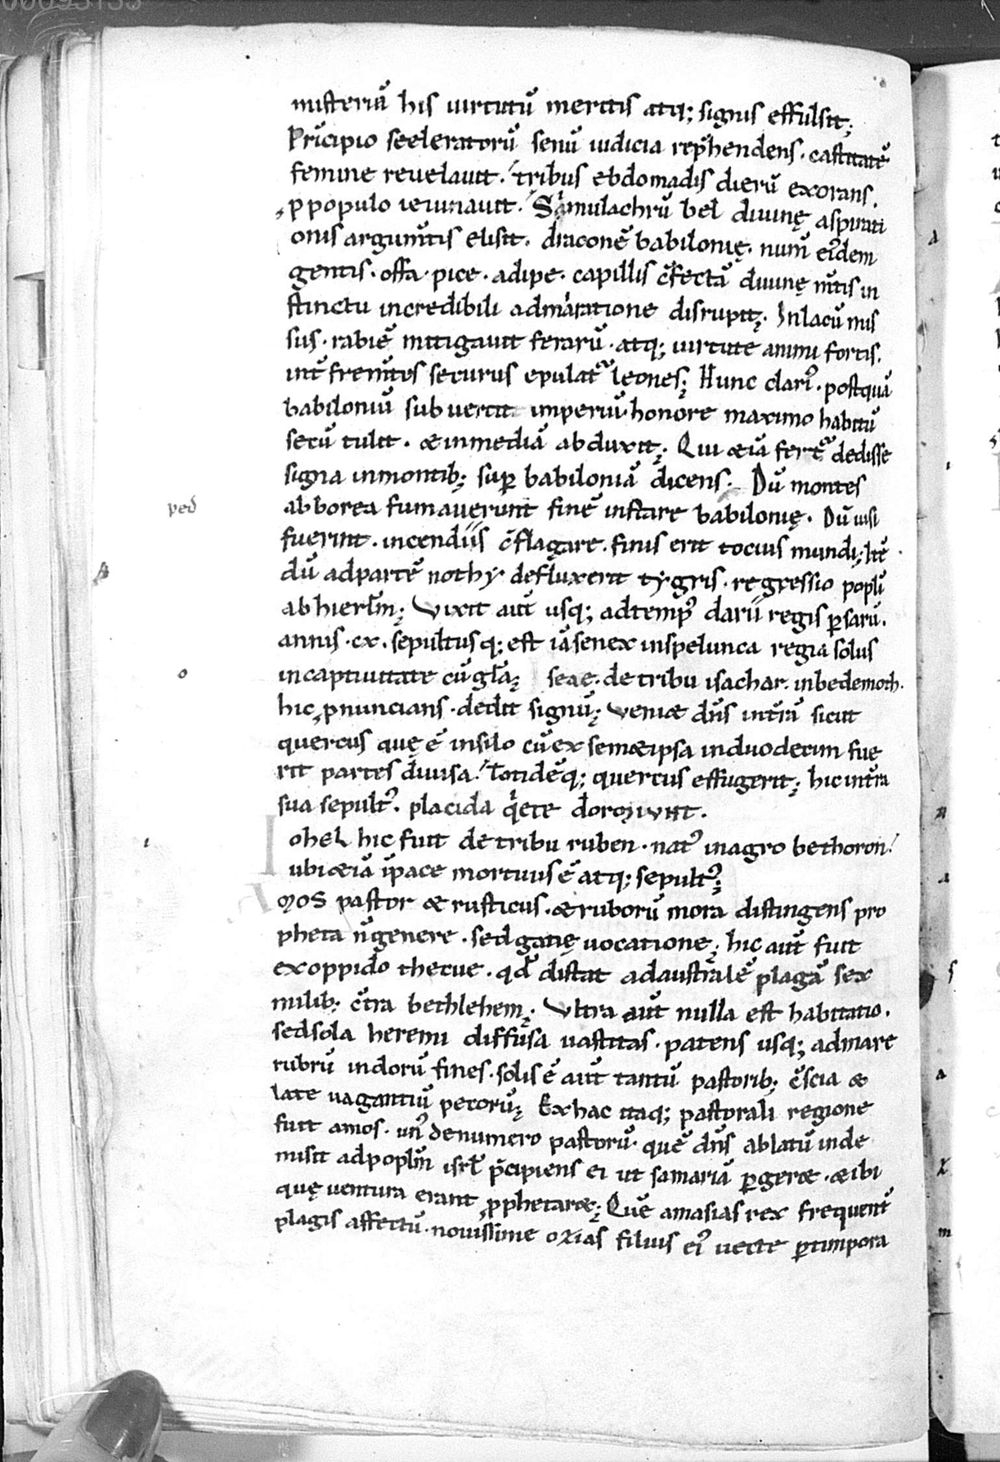 00095155
misteriū his uirtutū meritis atq; signis effulsit;
Prīcipio sceleratorū senū iudicia rep̄hendens. castitatē
femine reuelauit. tribus ebdomadis dierū exorans.
ꝓ populo ieiunauit. Simulachrū bel diuinę aspirati
onis argum̄tis elisit. draconē babilonię. num̄ eiꝰdem
gentis. offa. pice. adipe. capillis c̄fectā diuinę m̄tis in
stinctu incredibili admiratione disrupit;. In lacū mis
sus. rabiē mitigauit ferarū. atq; uirtute animi fortis.
int̄ frem̄tes securus epulatᷓ leones; Hunc clariꝰ. postquā
babiloniū subuertit imperiū. honore maximo habitū
secū tulit. & inmediā abduxit; Qui & iā fertᷓ dedisse
signa inmontib; sup babiloniā dicens. Dū montes
ab borea fumauerint finē instare babilonię. Dū uisi
fuerint. incendiis c̄flagare. finis erit tocius mundi; Itē
dū ad partē nothy defluxerit tygris. regressio popli
ab hierl̄m; Vixit aut̄ usq; ad tempꝰ darii regis ꝑsarū.
annis. cx. sepultusq; est iā senex inspelunca regia solus
incaptiuitate cū gl̄a; seae. de tribu isachar. inbedemoth.
hic ꝓnuncians. dedit signū; Veni& dn̄s int̄rā sicut
quercus quę ē insilo cū ex sem&ipsa induodecim fue
rit partes diuisa. Totidēq; quercus effugerit; hic int̄ra
sua sepultꝰ. placida q̄ete dormiunt.
Iohel hic fuit de tribu ruben. natꝰ inagro bethoron.
ubi & iā īpace mortuus ē atq; sepultꝰ;
MOS pastor & rusticus. & ruborū mora distingens pro
pheta n̄ genere. sed gatię uocatione; hic aut̄ fuit
ex oppido thecue. qd̄ distat ad australē plagā sex
milib; c̄tra bethlehem; Vltra aut̄ nulla est habitatio.
sed sola heremi diffusa uastitas. patens usq; ad mare
rubrū indorū fines. solis ē aut̄ tantū pastorib; c̄scia &
late uagantiū pecorū; Ex hac itaq; pastorali regione
fuit amos. unꝰ de numero pastorū. quē dn̄s ablatū inde
misit ad popl̄m isrl̄ p̄cipiens ei ut samariā ꝑger&. & ibi
quę uentura erant ꝓphetar&; Quē amasias rex frequent̄
plagis affectū. nouissime ozias filius eiꝰ uecte ꝑ timpora
ped